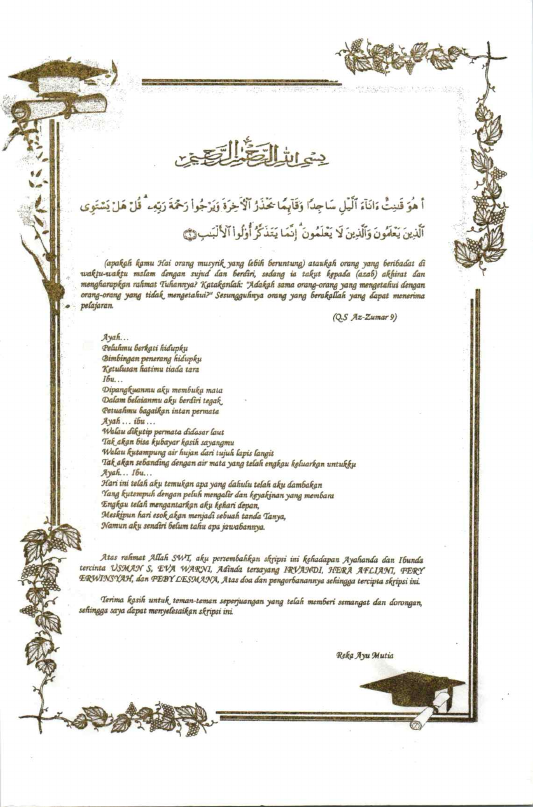 بسم الله الرحمن الرحيم
ا هُوَ قَٰنِتٌ ءَانَآءَ ٱلَّيْلِ سَاجِدًا وَقَآئِمًا يَحْذَرُ ٱلْأَخِرَةَ وَيَرْجُوا۟ رَحْمَةَ رَبِّهِۦ ۗ قُلْ هَلْ يَسْتَوِى
ٱلَّذِينَ يَعْلَمُونَ وَٱلَّذِينَ لَا يَعْلَمُونَ ۗ إِنَّمَا يَتَذَكَّرُ أُو۟لُوا۟ ٱلْأَلْبَٰبِ ﴿٩﴾
(apakah kamu Hai orang musyrik yang lebih beruntung) ataukah orang yang beribadat di
waktu-waktu malam dengan sujud dan berdiri, sedang ia takut kepada (azab) akhirat dan
mengharapkan rahmat Tuhannya? Katakanlah: "Adakah sama orang-orang yang mengetahui dengan
orang-orang yang tidak mengetahui?" Sesungguhnya orang yang berakallah yang dapat menerima
pelajaran.
(Q.S Az-Zumar 9)
Ayah…
Peluhmu berkati hidupku
Bimbingan penerang hidupku
Ketulusan hatimu tiada tara
Ibu…
Dipangkuanmu aku membuka mata
Dalam belaianmu aku berdiri tegak
Petuahmu bagaikan intan permata
Ayah … ibu …
Walau dikutip permata didasar laut
Tak akan bisa kubayar kasih sayangmu
Walau kutampung air hujan dari tujuh lapis langit
Tak akan sebanding dengan air mata yang telah engkau keluarkan untukku
Ayah… Ibu…
Hari ini telah aku temukan apa yang dahulu telah aku dambakan
Yang kutempuh dengan peluh mengalir dan keyakinan yang membara
Engkau telah mengantarkan aku kehari depan,
Meskipun hari esok akan menjadi sebuah tanda Tanya,
Namun aku sendiri belum tahu apa jawabannya.
Atas rahmat Allah SWT, aku persembahkan skripsi ini kehadapan Ayahanda dan Ibunda
tercinta USMAN S, EVA WARNI, Adinda tersayang IRVANDI, HERA AFLIANI, FERY
ERWINSYAH, dan PEBY LESMANA, Atas doa dan pengorbanannya sehingga tercipta skripsi ini.
Terima kasih untuk teman-teman seperjuangan yang telah memberi semangat dan dorongan,
sehingga saya dapat menyelesaikan skripsi ini.
Reka Ayu Mutia